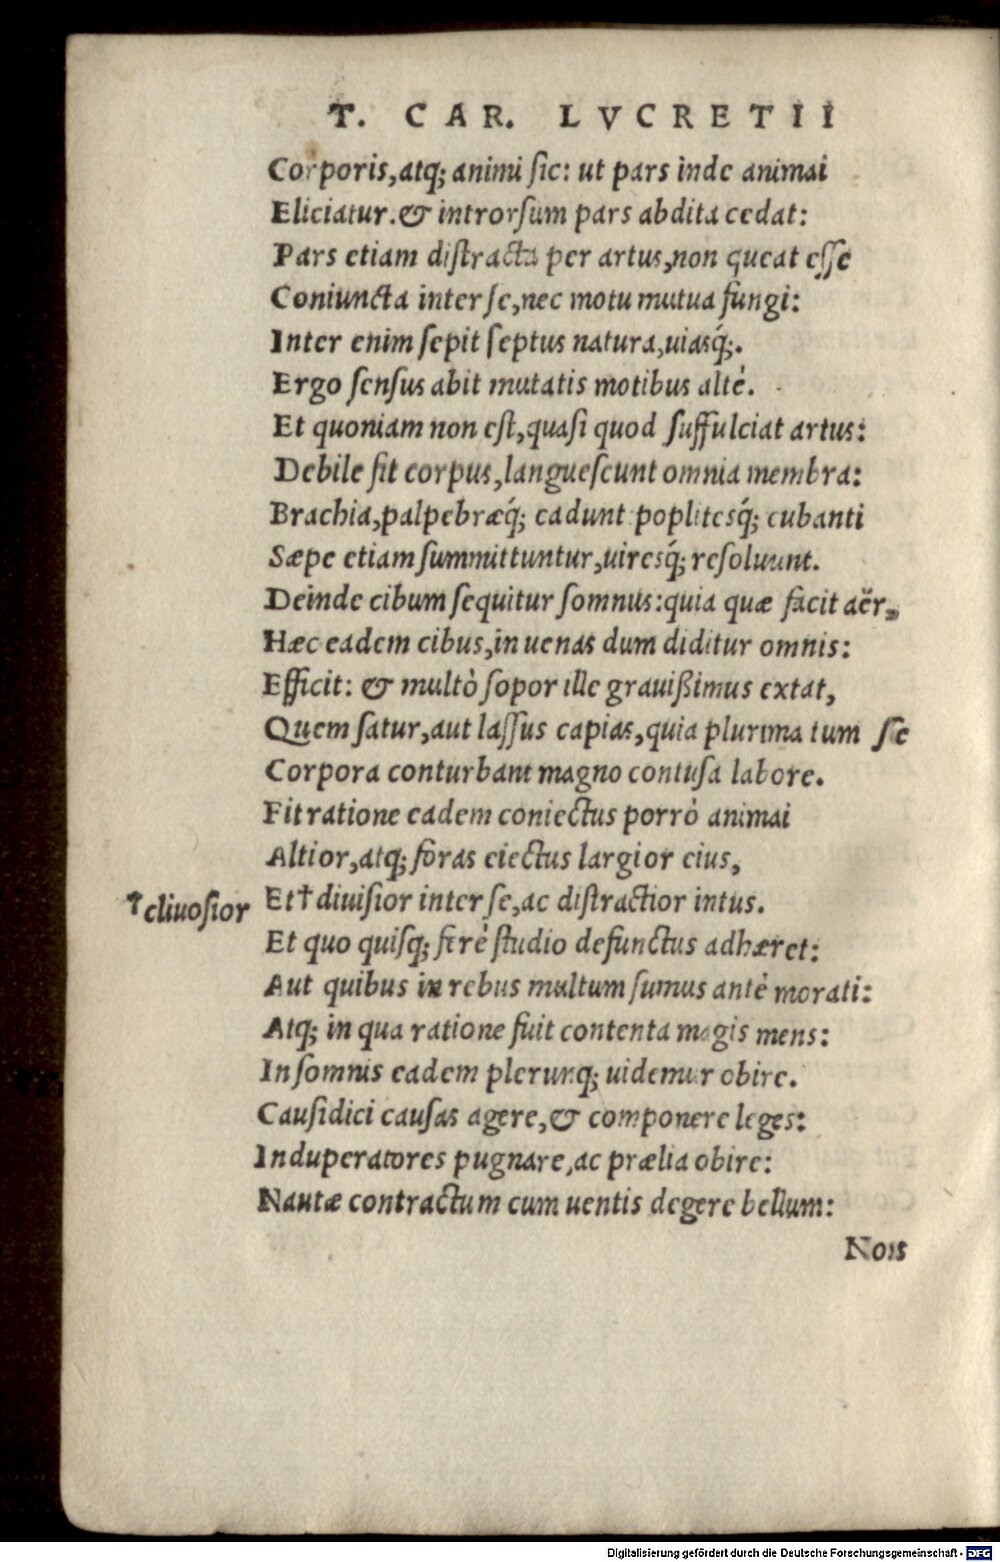 T. CAR. LVCRETII
Corporis, atq; animi ſic: ut pars inde animai
Eliciatur. & introrſum pars abdita cedat:
Pars etiam diſtracta per artus, non queat eſſe
Coniuncta inter ſe, nec motu mutua fungi:
Inter enim ſepit ſeptus natura, uiasq́;.
Ergo ſenſus abit mutatis motibus altè.
Et quoniam non eſt, quaſi quod ſuffulciat artus:
Debile fit corpus, langueſcunt omnia membra:
Brachia, palpebræq́; cadunt poplitesq́; cubanti
Sæpe etiam ſummittuntur, uiresq́; reſoluunt.
Deinde cibum ſequitur ſomnus: quia quæ facit aër,
Hæc eadem cibus, in uenas dum diditur omnis:
Efficit: & multò ſopor ille grauißimus extat,
Quem ſatur, aut laſſus capias, quia plurima tum ſe
Corpora conturbant magno contuſa labore.
Fit ratione eadem coniectus porrò animai
Altior, atq; foras eiectus largior eius,
†cliuoſior
Et † diuiſior inter ſe, ac diſtractior intus.
Et quo quiſq; ferè ſtudio defunctus adhæret:
Aut quibus in rebus multum ſumus antè morati:
Atq; in qua ratione fuit contenta magis mens:
In ſomnis eadem plerunq; uidemur obire.
Cauſidici cauſas agere, & componere leges:
Induperatores pugnare, ac prælia obire:
Nautæ contractum cum uentis degere bellum:
Nos
Digitalisierung gefördert durch die Deutsche Forschungsgemeinschaft - DFG